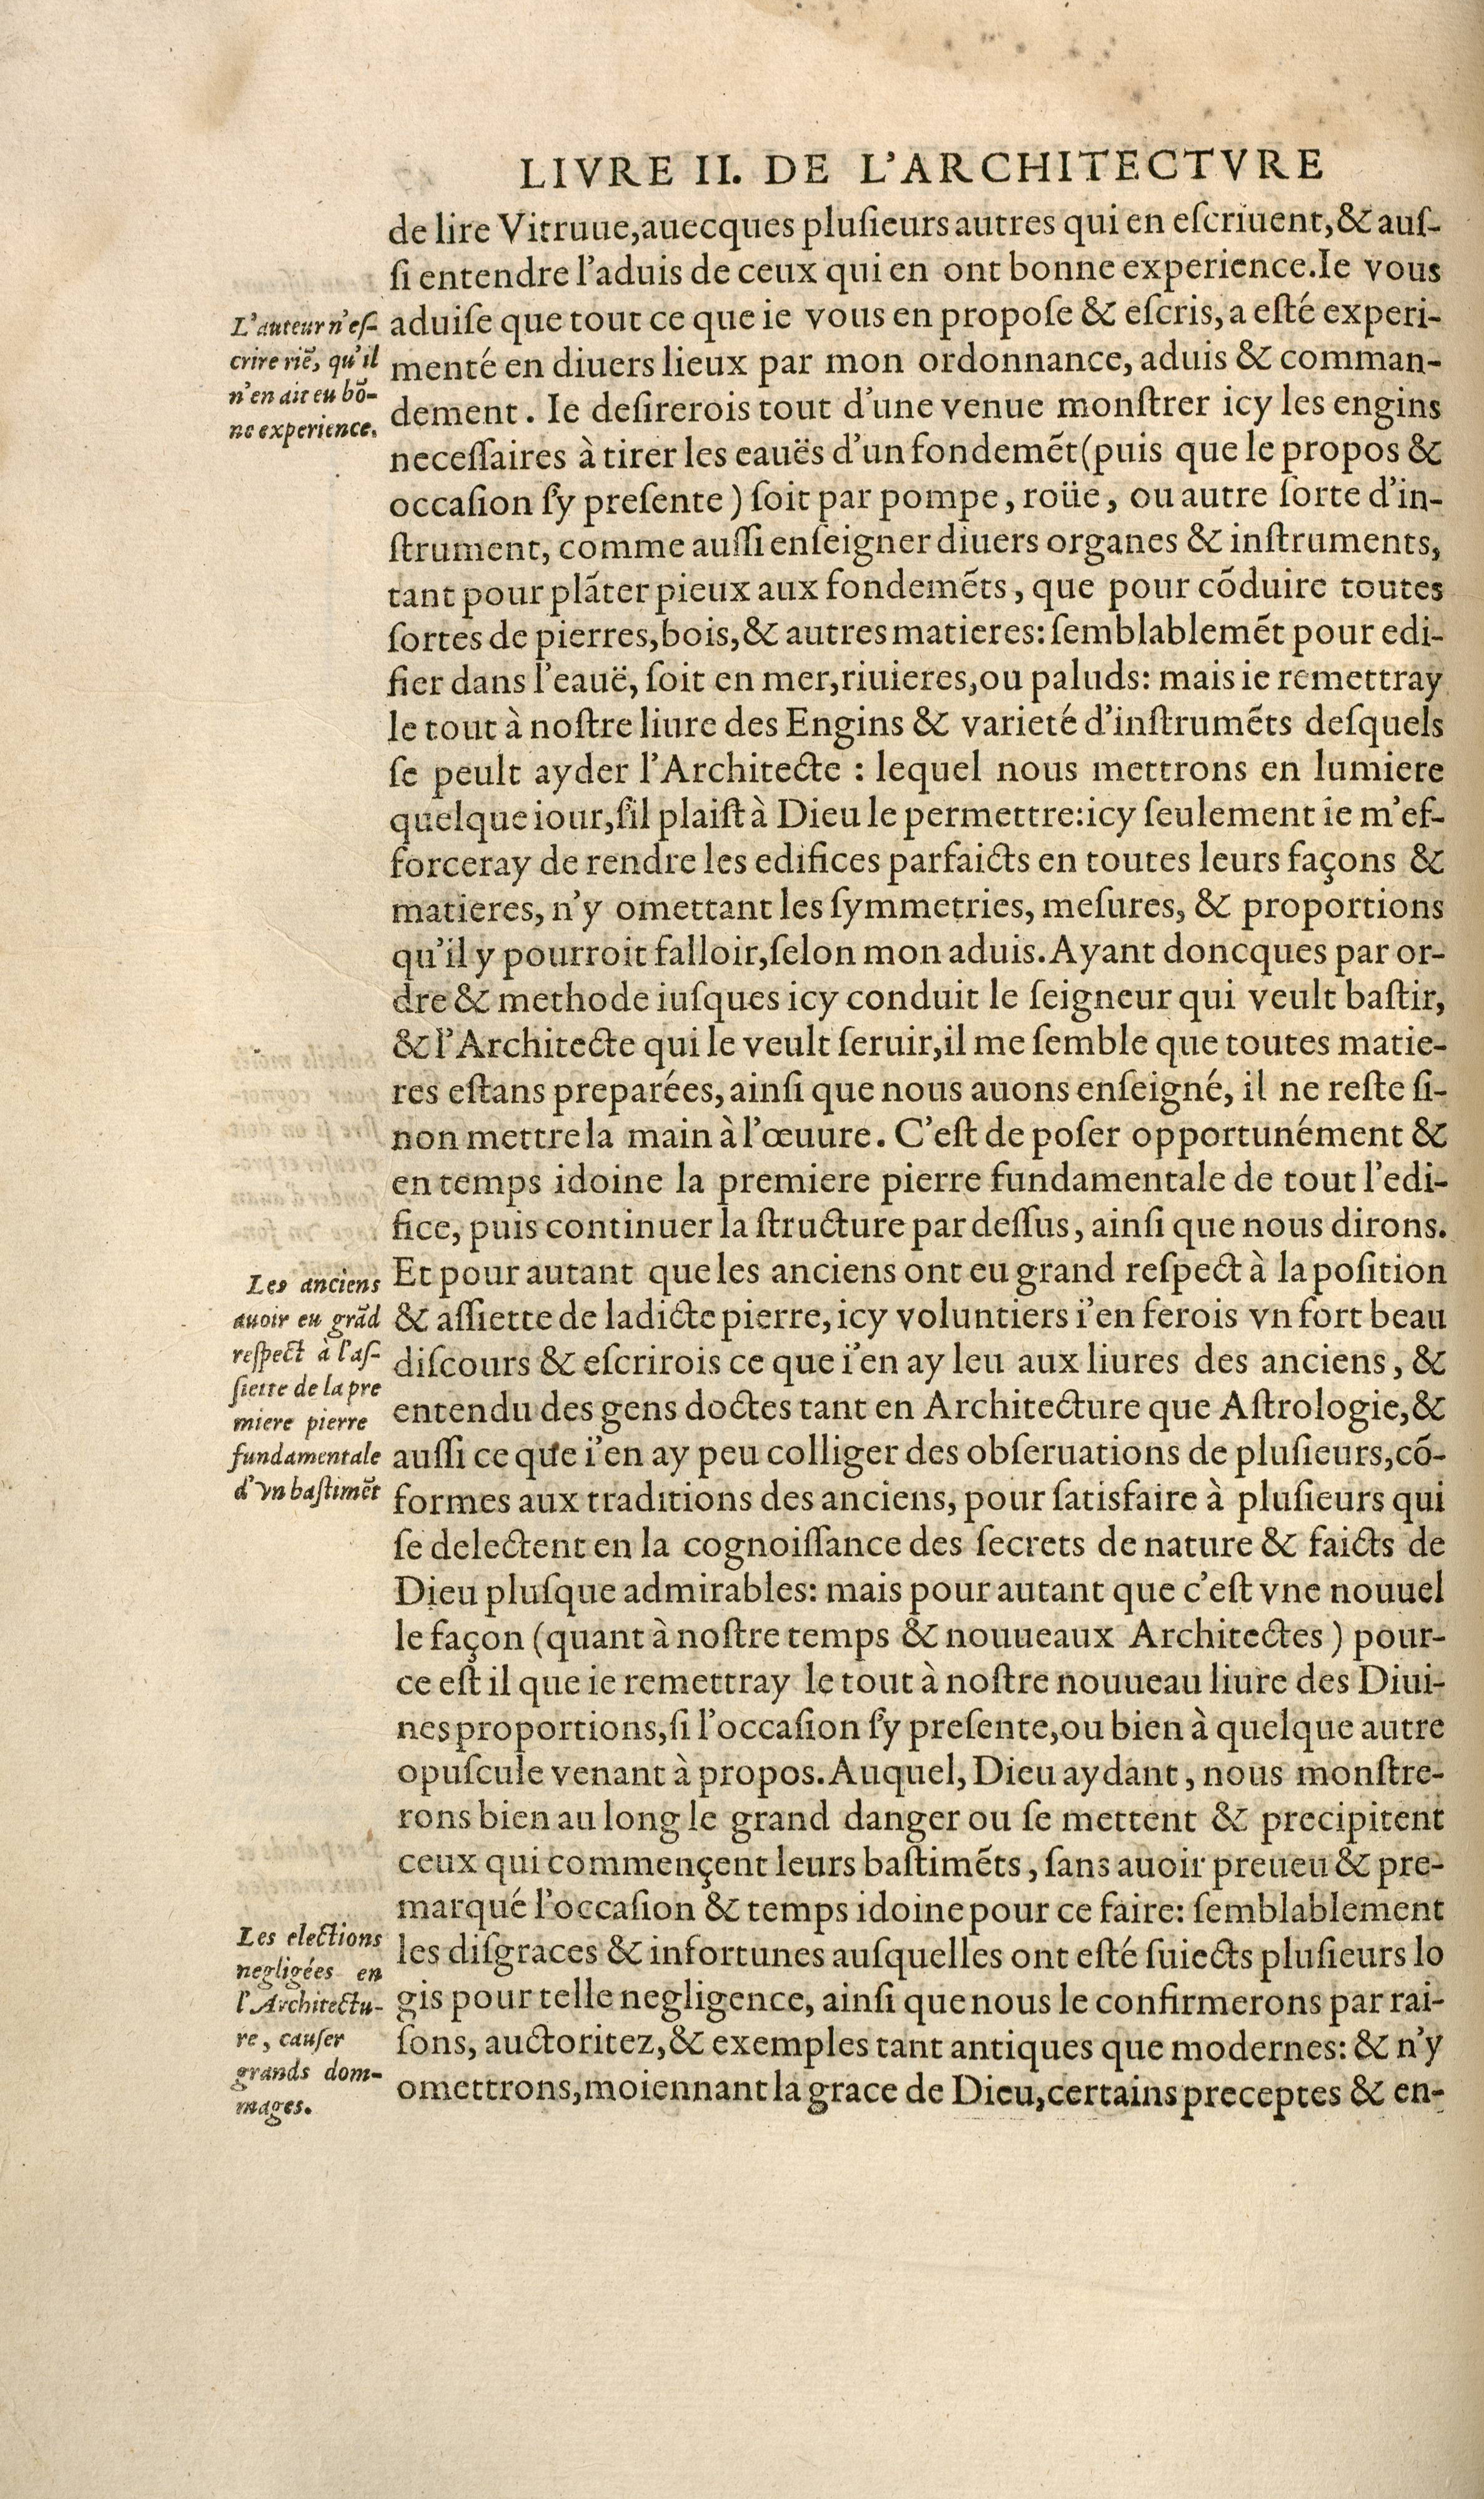 LIVRE II. DE L'ARCHITECTVRE
de lire Vitruue,auecques pluſieurs autres qui en eſcriuent,& auſ-
ſi entendre l'aduis de ceux qui en ont bonne experience.Ie vous
aduiſe que tout ce que ie vous en propoſe & eſcris, a eſté experi-
menté en diuers lieux par mon ordonnance, aduis & comman-
dement. Ie deſirerois tout d'une venue monſtrer icy les engins
neceſſaires à tirer les eauës d'un fondemẽt(puis que le propos &
occaſion ſ'y preſente) ſoit par pompe, roüe, ou autre ſorte d'in-
ſtrument, comme auſſi enſeigner diuers organes & inſtruments,
tant pour plãter pieux aux fondemẽts, que pour cõduire toutes
ſortes de pierres,bois,& autres matieres: ſemblablemẽt pour edi-
fier dans l'eauë, ſoit en mer,riuieres,ou paluds: mais ie remettray
le tout à noſtre liure des Engins & varieté d'inſtrumẽts deſquels
ſe peult ayder l'Architecte : lequel nous mettrons en lumiere
quelque iour,ſ'il plaiſt à Dieu le permettre:icy ſeulement ie m'ef-
forceray de rendre les edifices parfaicts en toutes leurs façons &
matieres, n'y omettant les ſymmetries, meſures, & proportions
qu'il y pourroit falloir,ſelon mon aduis.Ayant doncques par or-
dre & methode iuſques icy conduit le ſeigneur qui veult baſtir,
& l'Architecte qui le veult ſeruir,il me ſemble que toutes matie-
res eſtans preparées, ainſi que nous auons enſeigné, il ne reſte ſi-
non mettre la main à l'œuure. C'eſt de poſer opportunément &
en temps idoine la premiere pierre fundamentale de tout l'edi-
fice, puis continuer la ſtructure par deſſus, ainſi que nous dirons.
Et pour autant que les anciens ont eu grand reſpect à la poſition
& aſſiette de ladicte pierre, icy voluntiers i'en ferois vn fort beau
diſcours & eſcrirois ce que i'en ay leu aux liures des anciens, &
entendu des gens doctes tant en Architecture que Aſtrologie,&
auſſi ce que i'en ay peu colliger des obſeruations de pluſieurs,cõ-
formes aux traditions des anciens, pour ſatisfaire à pluſieurs qui
ſe delectent en la cognoiſſance des ſecrets de nature & faicts de
Dieu pluſque admirables: mais pour autant que c'eſt vne nouuel
le façon (quant à noſtre temps & nouueaux Architectes) pour-
ce eſt il que ie remettray le tout à noſtre nouueau liure des Diui-
nes proportions,ſi l'occaſion ſ'y preſente,ou bien à quelque autre
opuſcule venant à propos.Auquel, Dieu aydant, nous monſtre-
rons bien au long le grand danger ou ſe mettent & precipitent
ceux qui commençent leurs baſtimẽts, ſans auoir preueu & pre-
marqué l'occaſion & temps idoine pour ce faire: ſemblablement
les diſgraces & infortunes auſquelles ont eſté ſuiects pluſieurs lo
gis pour telle negligence, ainſi que nous le confirmerons par rai-
ſons, auctoritez,& exemples tant antiques que modernes: & n'y
omettrons,moiennant la grace de Dieu,certains preceptes & en-
L'auteur n'eſ-
crire riẽ, qu'il
n'en ait eu bõ-
ne experience.
Les anciens
auoir eu grãd
reſpect a l'aſ-
ſiette de la pre
miere pierre
fundamentale
d'vn baſtimẽt
Les elections
negligées en
l'Architectu-
re, cauſer
grands dom-
mages.